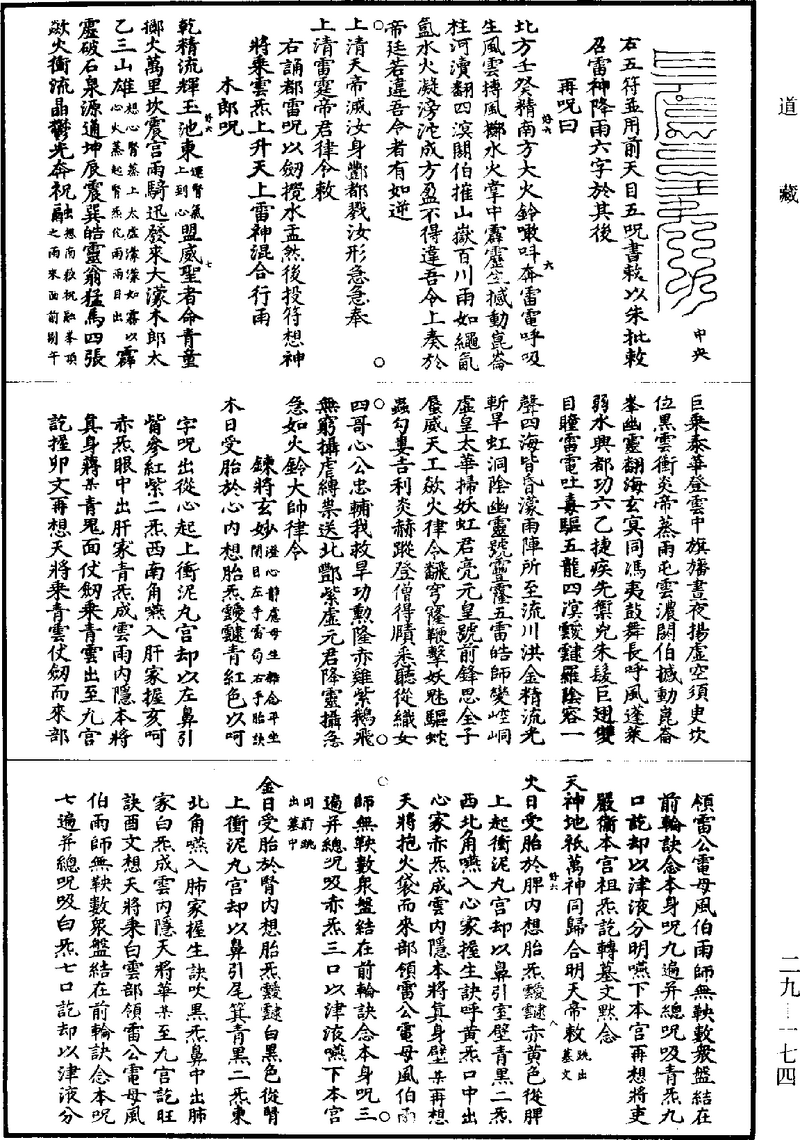 道藏
中央
右五符並用前天目五呪書敕以朱批敕
召雷神降雨六字於其後
再呪曰
北方壬癸精南方大火鈴噉呌奔雷電呼吸
生風雲摶風擲水火掌中霹靂坐撼動崑崙
柱河瀆翻四溟閼伯摧山嶽百川雨如繩氤
氳水火凝滂沱成方盈不得違吾令上奏於
帝廷若違吾令者有如逆
上清天帝滅汝身酆都戮汝形急急奉
上清雷霆帝君律令敕
右誦都雷呪以劒攪水盂然後投符想神
將乘雲炁上升天上雷神混合行雨
木郎呪
乾精流輝玉池東運腎氣上到心盟威聖者命青童
擲火萬里坎震宫雨騎迅發來大濛木郎太
乙三山雄想心腎蒸上太虛濛濛如霧以心火蒸起腎炁化雨兩目出霹
靂破石泉源通坤辰震巽皓靈翁猛馬四張
歘火衝流晶鬱光奔祝融想南殿祝融峯頂之雨來面前
巨乘泰華登雲中旗旛晝夜揚虛空須臾坎
位黑雲衝炎帝蒸雨屯雲濃閼伯撼動崑崙
峯幽靈翻海玄冥同馮夷鼓舞長呼風蓬萊
弱水興都功六乙捷疾先禦兇朱髮巨翅雙
目瞳雷電吐毒驅五龍四溟靉靆羅陰容一
聲四海皆昏濛雨陣所至流川洪金精流光
斬旱虹洞陰幽靈號靊霳五雷皓師變崆峒
虛皇太華掃妖虹君亮元皇號前鋒思全子
蜃威天工歘火律令翻穹窿鞭擊妖魅驅蛇
蟲勾婁吉利炎赫蹤登僧得贖悉聽從織女
四哥心公忠輔我救旱功勲隆赤雞紫鵝飛
無窮攝虐縛祟送北酆紫虛元君降靈攝急
急如火鈴大帥律令
鍊將玄妙澄心靜慮毋生雜念平坐閉目左手雷局右手胎訣
木日受胎於心内想胎炁靉靆青紅色以呵
字呪出從心起上衝泥丸宫却以左鼻引
觜參紅紫二炁西南角嚥入肝家握亥呵
赤炁眼中出肝家青炁成雲雨内隱本將
真身蔣某青鬼面仗劒乘青雲出至九宫
訖握卯文再想天將乘青雲仗劒而來部
領雷公電母風伯雨師無鞅數衆盤結在
前輪訣念本身呪九遍并總呪吸青炁九
口訖却以津液分明嚥下本宫再想將吏
嚴衞本宫祖炁訖轉墓文默念
天神地祇萬神同歸合明天帝敕跳出墓文
火日受胎於脾内想胎炁靉靆赤黄色從脾
上起衝泥丸宫却以鼻引室壁青黑二炁
西北角嚥入心家握生訣呼黄炁口中出
心家赤炁成雲内隱本將真身壁某再想
天將抱火袋而來部領雷公電母風伯雨
師無鞅數衆盤結在前輪訣念本身呪三
遍并總呪吸赤炁三口以津液嚥下本宫
同前跳出墓中
金日受胎於腎内想胎炁靉靆白黑色從腎
上衝泥丸宫却以鼻引尾箕青黑二炁東
北角嚥入肺家握生訣吹黑炁鼻中出肺
家白炁成雲内隱天將華某至九宫訖旺
訣酉文想天將乘白雲部領雷公電母風
伯雨師無鞅數衆盤結在前輪訣念本呪
七遍并總呪吸白炁七口訖却以津液分
二九—一七四